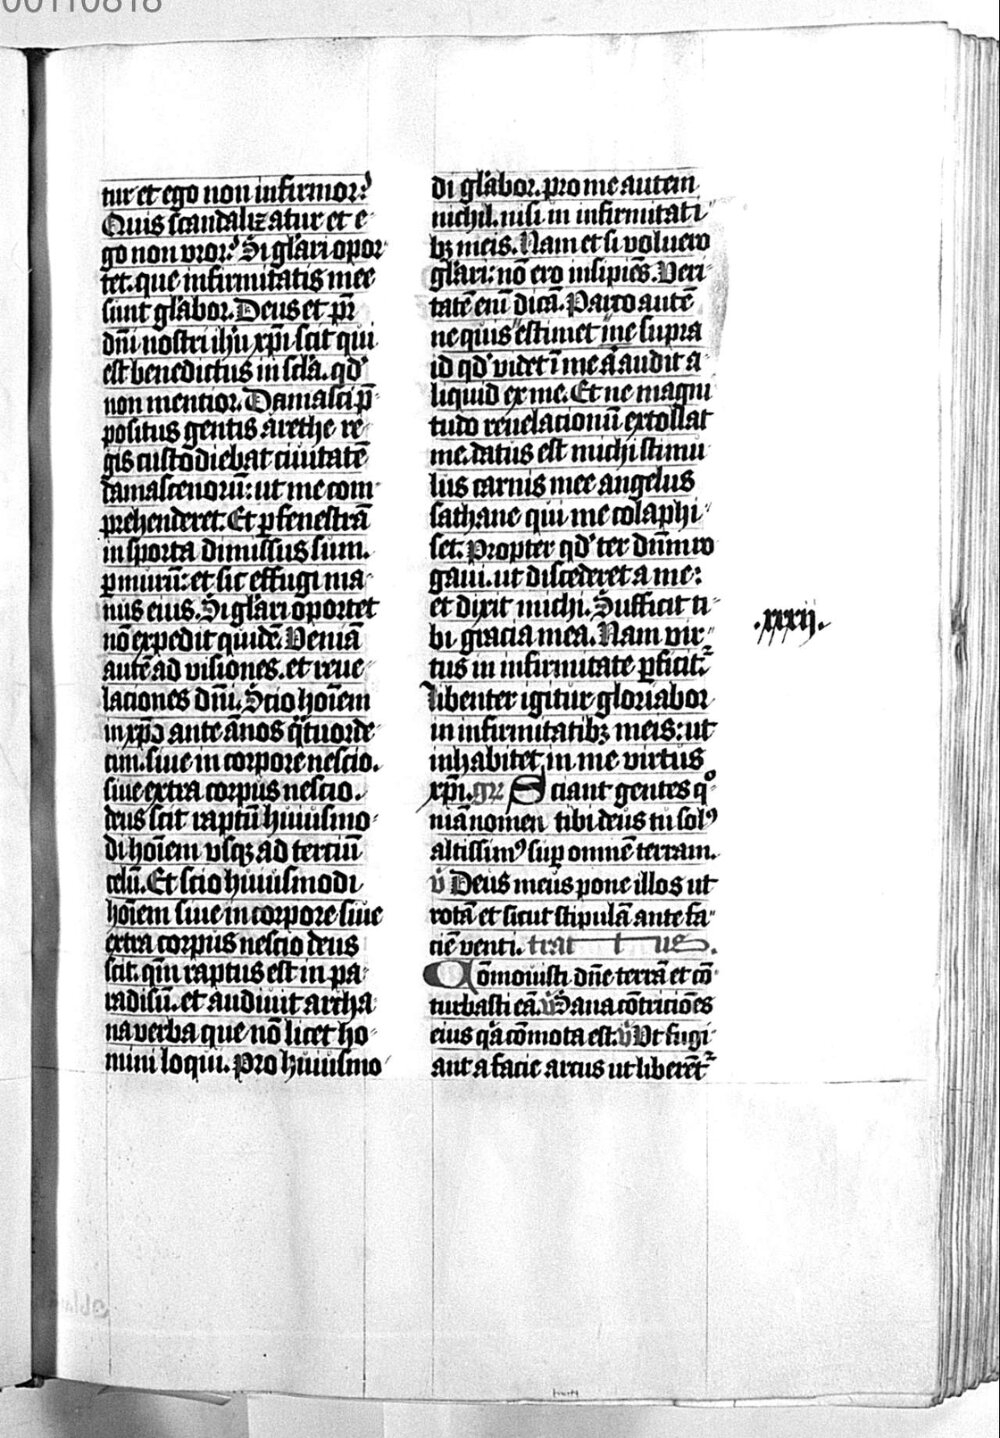 00110818
tur et ego non infirmor?
Quis scandalizatur et e
go non uror? Si gl'ari opor
tet. que infirmitatis mee
sunt gl'abor. Deus et pr̄
dn̄i nostri ihū xp̄i scit qui
est benedictus in sc̄la. qd'
non mentior. Damasci p̄
positus gentis arethe re
gis custodiebat ciuitatē
damascenorū: ut me com
prehenderet. Et ꝑ fenestrā
in sporta dimissus sum.
ꝑ murū: et sic effugi ma
nus eius. Si gl'ari oportet
nō expedit quidē. Veniā
autē ad visiones. et reue
laciones dn̄i. Scio hoīem
in xp̄o ante ānos q̄tuorde
cim. siue in corpore nescio.
siue extra corpus nescio.
deus scit raptū huiusmo
di hoīem vsqꝫ ad terciū
celū. Et scio huiusmodi
hoīem siue in corpore siue
extra corpus nescio deus
scit. qm̄ raptus est in pa
radisū. et audiuit archa
na verba que nō licet ho
mini loqui. Pro huiusmo
di gl'abor. pro me autem
nichil. nisi in infirmitati
bꝫ meis. Nam et si voluero
gl'ari: nō ero insipiēs. Veri
tatē eni̅ dicā. Parco autē
ne quis estimet me supra
id qd' videt ī me aͭ audit a
liquid ex me. Et ne magni
tudo reuelacionū extollat
me. datus est michi stimu
lus carnis mee angelus
sathane qui me colaphi
set. Propter qd' ter dn̄m ro
gaui. ut discederet a me:
et dixit michi. Sufficit ti
bi gracia mea. Nam vir
tus in infirmitate ꝑficit᷑.
libenter igitur gloriabor
in infirmitatibꝫ meis: ut
inhabitet in me virtus
.xxxij.
xp̄i. gr̄ Sciant gentes qͦ
niā nomen tibi deus tu solꝰ
altissimꝰ suꝑ omnē terram.
v̄ Deus meus pone illos ut
rotā et sicut stipulā ante fa
ciē venti. tractus.
Cōmouisti dn̄e terrā et cō
turbasti eā. v̄ Sana cōtriciōes
eius qͣ cōmota est. v̄ Vt fugi
ant a facie arcus ut liberēt᷑